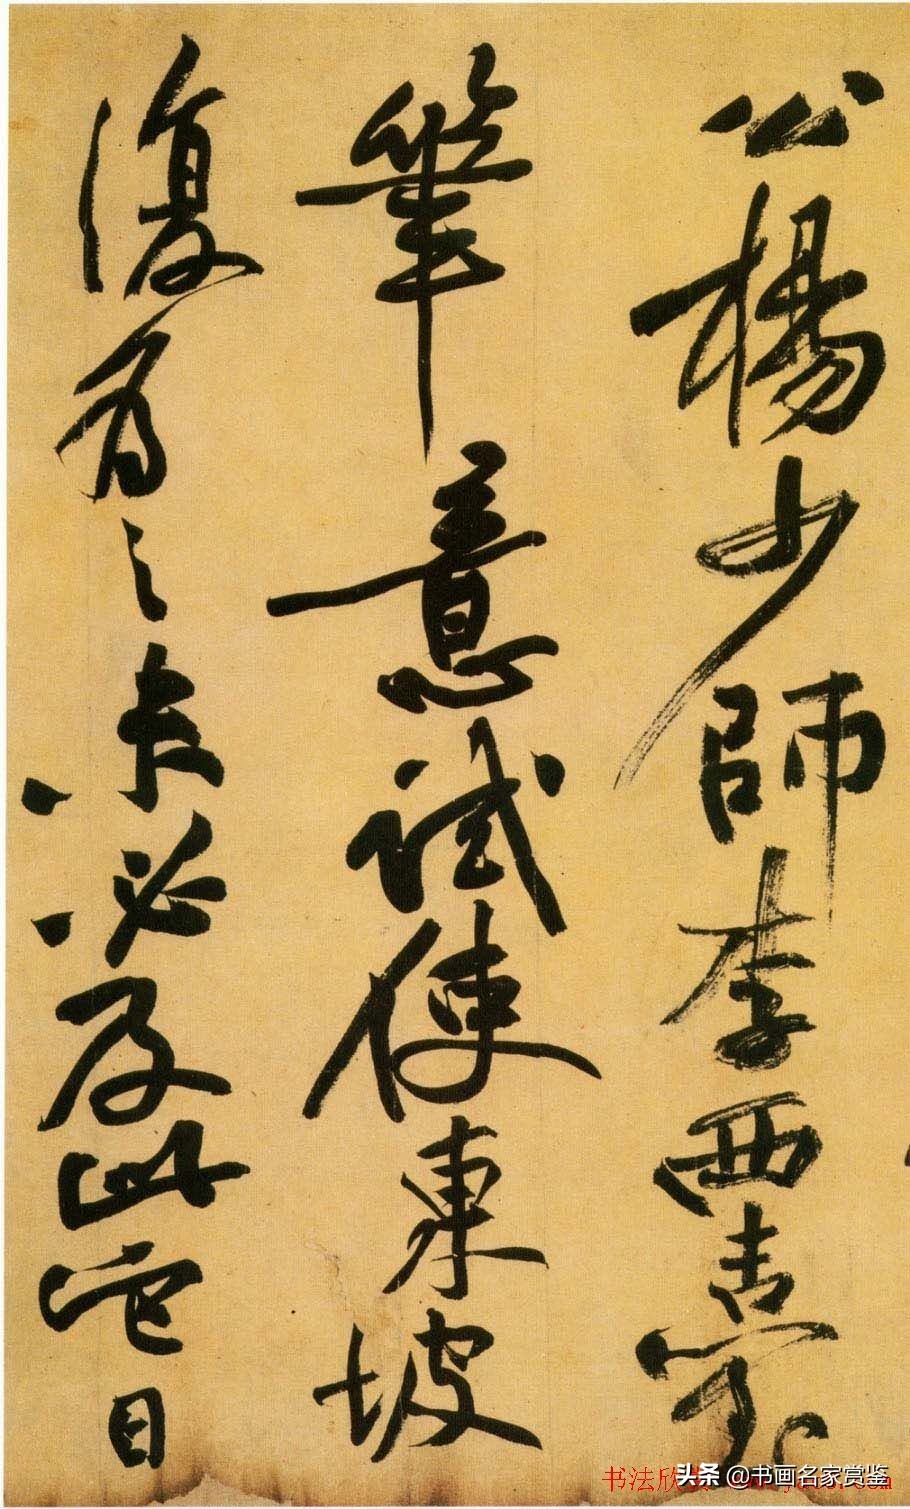 公楊少師李西臺
筆意試使東坡
復為之未必及此它日
书法欣
头条 @书画名家赏鉴